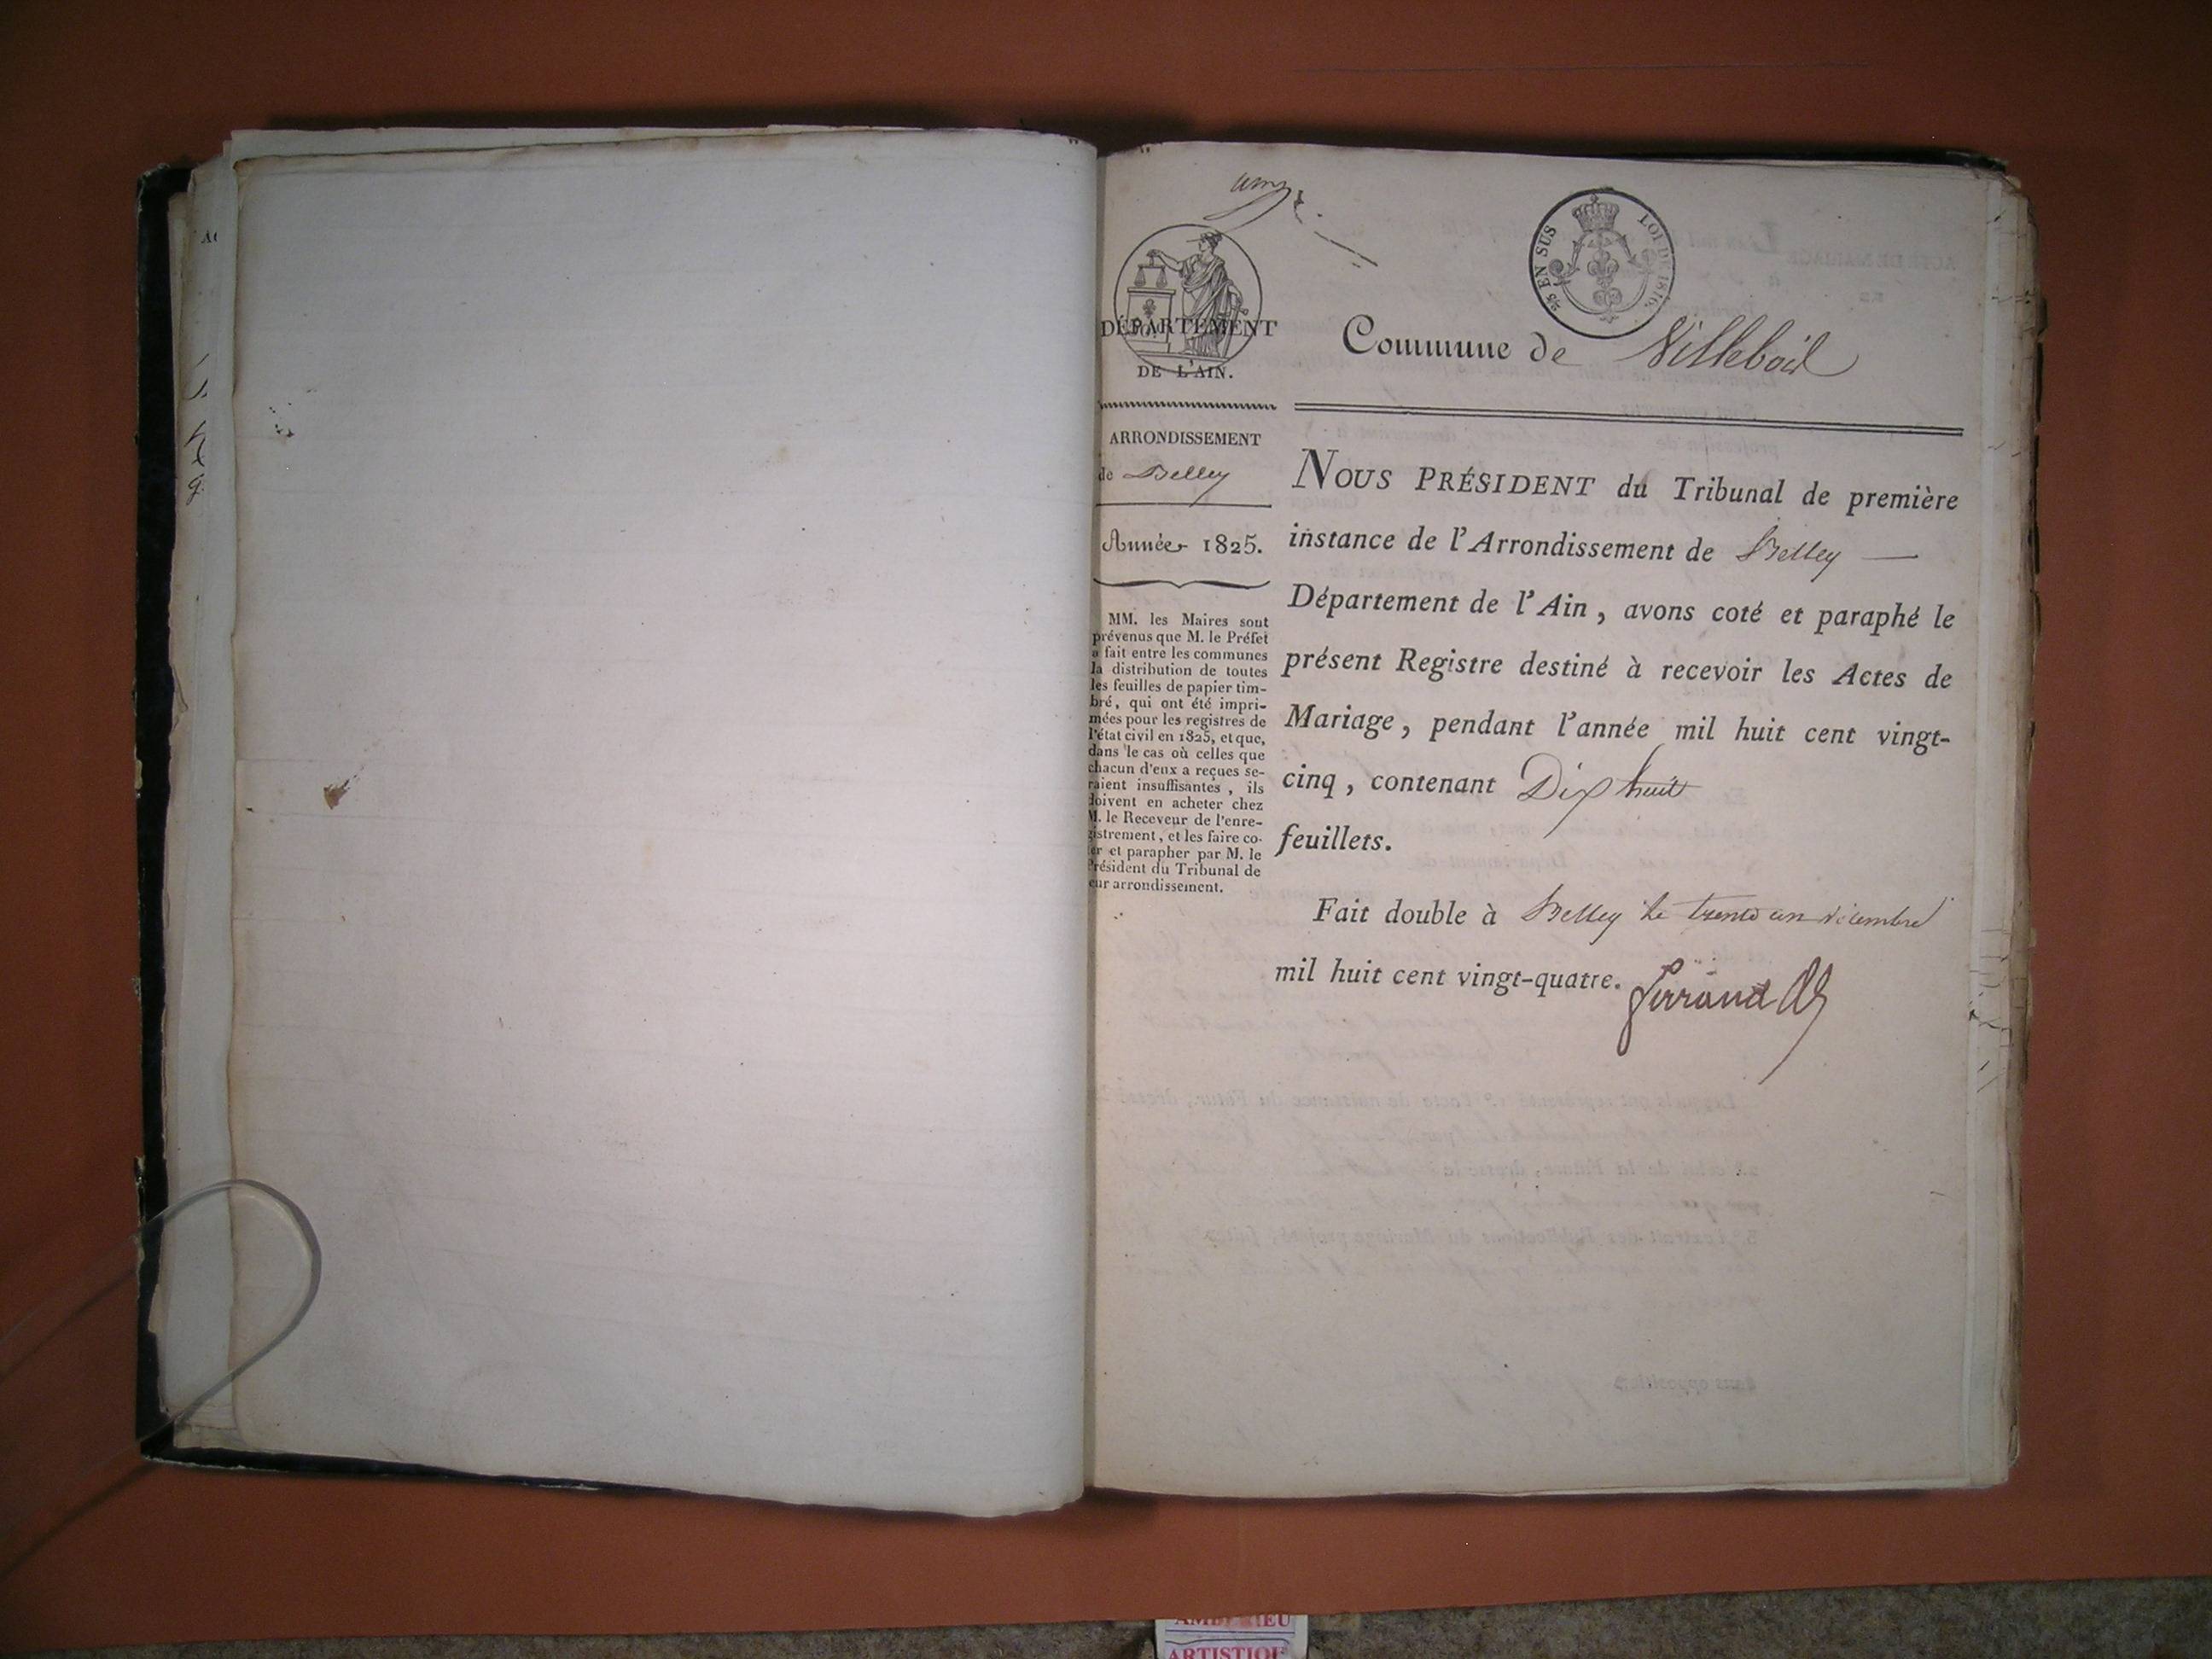 DÉPARTEMENT
DE L'AIN.
ARRONDISSEMENT
de Belley
Année 1825.
MM. les Maires sont
prévenus que M. le Préfet
a fait entre les communes
la distribution de toutes
les feuilles de papier tim-
bré, qui ont été impri-
mées pour les registres de
l'état civil en 1825, et que,
dans le cas où celles que
chacun d'eux a reçues se-
raient insuffisantes, ils
doivent en acheter chez
M. le Receveur de l'enre-
gistrement, et les faire co-
ter et parapher par M. le
Président du Tribunal de
leur arrondissement.
EN SUS
LOI DE 1816.
Commune de Villebois
NOUS PRÉSIDENT du Tribunal de première
instance de l'Arrondissement de Belley —
Département de l'Ain, avons coté et paraphé le
présent Registre destiné à recevoir les Actes de
Mariage, pendant l'année mil huit cent vingt-
cinq, contenant Dix huit
feuillets.
Fait double à Belley le trente un décembre
mil huit cent vingt-quatre.
ARTISTIQUE